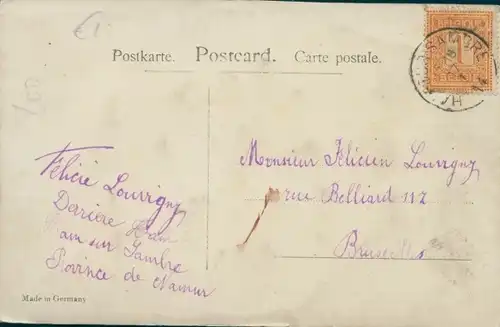 €1
BELGIQUE
SAMBRE
Postkarte. Postcard. Carte postale.
Félicie Louvigny
Derrière Ham
Ham sur Sambre
Province de Namur
Monsieur Félicien Louvigny
rue Belliard 112
Bruxelles
Made in Germany